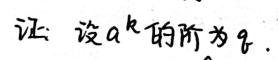 证: 设 a^k 的阶为 q.